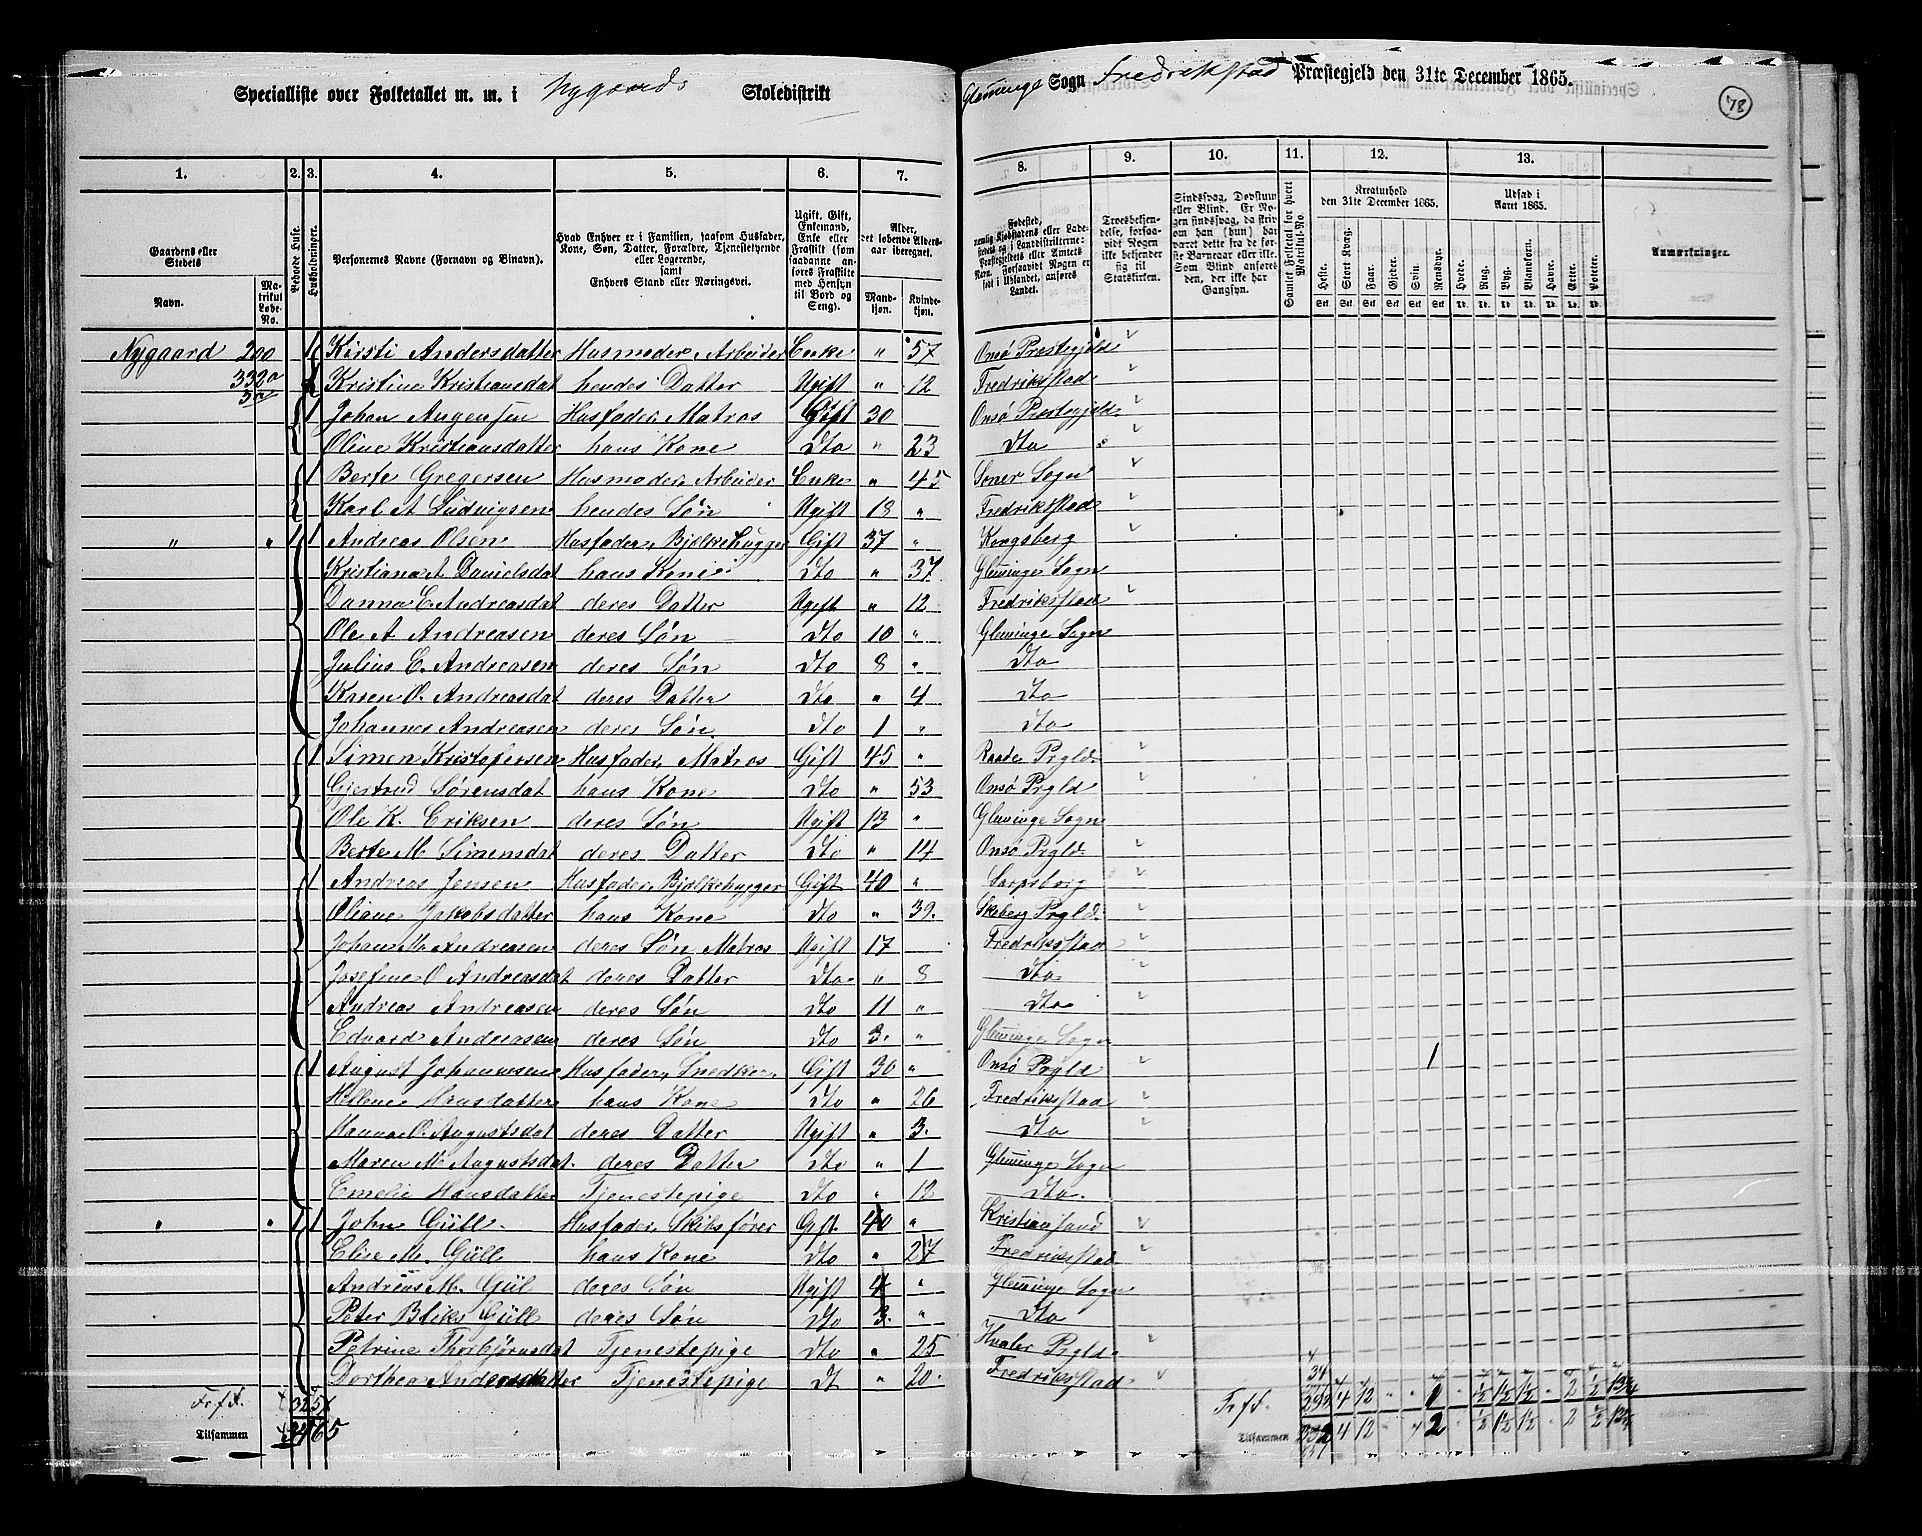 Specialliste over Folketallet m. m. i Nygaards Skoledistrikt Glemminge Sogn Fredrikstad Præstegjeld den 31te December 1865.
78
1. 2. 3. 4. 5. 6. 7. 8. 9. 10. 11. 12. 13.
Gaardens eller Stedets
Navn. Matrikul Løbe-No.
Beboede Huse.
Husholdninger.
Personernes Navne (Fornavn og Binavn).
Hvad Enhver er i Familien, saasom Husfader, Kone, Søn, Datter, Forældre, Tjenestetyende eller Logerende, samt Enhvers Stand eller Næringsvei.
Ugift, Gift, Enkemand, Enke eller Fraskilt (som saadanne anføres Fraskilte med Hensyn til Bord og Seng).
Alder, det løbende Alders-aar iberegnet.
Mandkjøn. Kvindekjøn.
Fødested, nemlig Kjøbstadens eller Ladestedets og i Landdistrikterne: Præstegjeldets eller Amtets Navn. Forsaavidt Nogen er født i Udlandet, anføres Landet.
Troesbekjendelse, forsaavidt Nogen ikke bekjender sig til Statskirken.
Sindssvag, Døvstum eller Blind. Er Nogen sindssvag, da skrives om han (hun) har været dette fra de første Barneaar eller ikke. Som Blind anføres den, der ikke har Gangsyn.
Samlet Folketal for hvert Matrikul-No.
Kreaturhold den 31te December 1865.
Heste. Stort Kvæg. Faar. Gjeder. Svin. Rensdyr.
Udsæd i Aaret 1865.
Hvede. Rug. Byg. Blandkorn. Havre. Erter. Poteter.
Anmærkninger.
Nygaard 200 1 Kirsti Andersdatter Husmoder, Arbeider Enke " 57 Onsø Præstegjeld
332a Kristine Kristiansdat hendes Datter Ugift " 12 Fredriksstad
1 Johan Augensen Husfader, Matros Gift 30 Onsø Præstegjeld
Oline Kristiansdatter hans Kone Dto " 23 Dto
1 Berte Gregersen Husmoder, Arbeider Enke " 45 Soner Sogn
Karl A Ludvigsen hendes Søn Ugift 18 " Fredriksstad
" " 1 1 Andreas Olsen Husfader, Bjelkehugger Gift 37 " Kongsberg
Kristiana A Danielsdat hans Kone Dto " 37 Glemminge Sogn
Danna E. Andreasdat deres Datter Ugift " 12 Fredriksstad
Ole A Andreasen deres Søn Dto 10 " Glemminge Sogn
Julius E. Andreasen deres Søn Dto 8 " Dto
Karen O. Andreasdat deres Datter Dto " 4 Dto
Johannes Andreasen deres Søn Dto 1 " Dto
1 Simen Kristofersen Husfader, Matros Gift 45 " Raade Prgld.
Gjertrud Sørensdat hans Kone Dto " 53 Onsø Prgld
Ole K. Eriksen deres Søn Ugift 13 " Glemminge Sogn
Berte M Simensdat deres Datter Dto " 14 Onsø Prgld.
1 Andreas Jensen Husfader, Bjelkehugger Gift 40 " Sarpsborg
Oliane Jakobsdatter hans Kone Dto " 39. Skeberg Prgld.
Johan M. Andreasen deres Søn Matros Ugift 17 Fredriksstad
Josefine O Andreasdat deres Datter Dto " 8 Dto
Andreas Andreasen deres Søn Dto 11 " Dto
Edvard Andreasen deres Søn Dto 3. " Glemminge Sogn
1 August Johannesen Husfader, Snedker, Gift 30 " Onsø Prgld 1
Hellene Hansdatter hans Kone Dto " 26 Fredriksstad
Hanna O. Augustsdat deres Datter Ugift " 3. Dto
Maren M. Augustsdat. deres Datter Dto " 1 Glemminge Sogn
Emelie Hansdatter Tjenestepige Dto " 12 Dto.
" " 1 1 John Güll. Husfader, Skibsfører Gift. 40 " Kristiansand
Elise M. Güll hans Kone Dto " 27 Fredriksstad
Andreas M. Gül deres Søn Ugift 4 " Glemminge Sogn
Peter Bliks Güll deres Søn Dto 3. " Dto
Petrine Thorbjørnsdat Tjenestepige Dto " 25 Hvaler Prgld.
Dorthea Andersdatter Tjenestepige Dt " 20. Fredriksstad 34
Frfd. Frfd. 4 12 " " 1 " ½ 1½ 1½ " 2 ½
Tilsammen Tilsammen 332 4 12 " " 2 " ½ 1½ 1½ " 2 ½